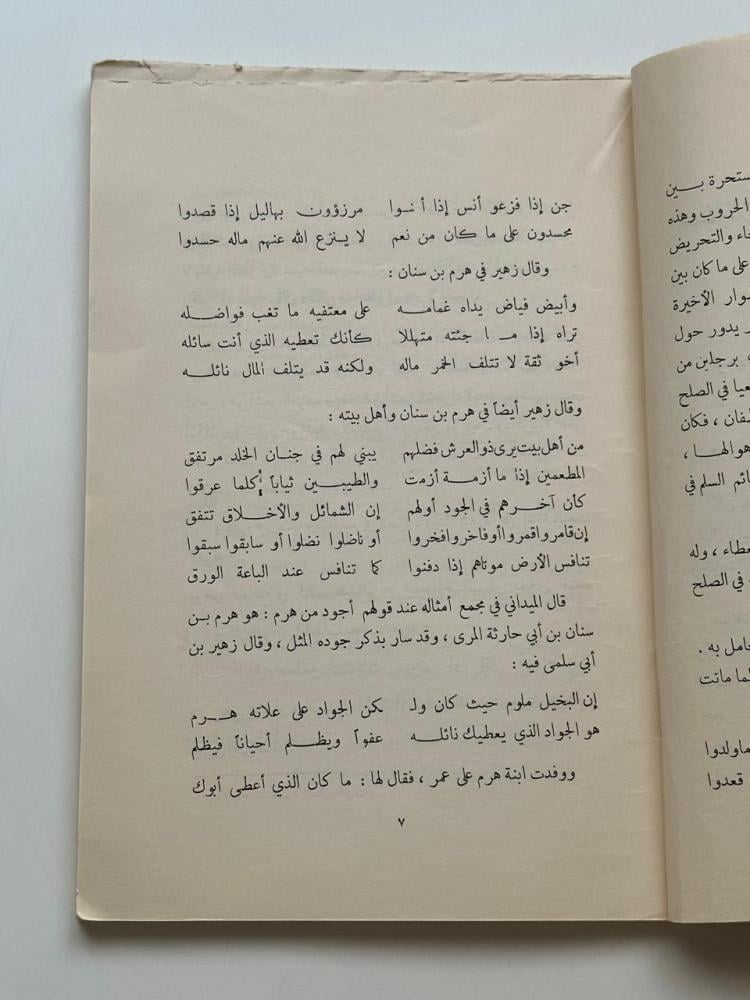 بــين
الحروب وهذه
والتحريض
على ما كان بين
الأخيرة
يدور حول
، برجلين من
في الصلح
، فكان
،
السلم في
، وله
في الصلح
به .
ماتت
ماولدوا
قعدوا
جن إذا فزعو أنس إذا أ نــوا مرزؤون بهاليل إذا قصدوا
محسدون على ما كان من نعم لا يــنزع الله عنهم ماله حسدوا
وقال زهير في هرم بن سنان :
وأبيض فياض يداه غمامــه على معتفيه ما تغب فواضــله
تراه إذا مــ ا جئته متهللا كأنك تعطيه الذي أنت سائله
أخو ثقة لا تتلف الخمر ماله ولكنه قد يتلف المال نائلــه
وقال زهير أيضاً في هرم بن سنان وأهل بيته :
من أهل بيت يرى ذوالعرش فضلهم يبني لهم في جنان الخلد مرتفق
المطعمين إذا ما أزمــة أزمت والطيبــين ثياباً كلما عرقوا
كأن آخــرهم في الجود أولهم إن الشمائل والأخــلاق تتفق
إن قامروا قمروا أو فاخروا فخروا أو ناضلوا نضلوا أو سابقوا سبقوا
تنافس الأرض موتاهم إذا دفنوا كما تنافس عند الباعة الورق
قال الميداني في مجمع أمثاله عند قولهم أجود من هرم : هو هرم بــن
سنان بن أبي حارثة المرى ، وقد سار بذكر جوده المثل ، وقال زهير بن
أبي سلمى فيه :
إن البخيل ملوم حيث كان ولـ كن الجواد على علاته هــرم
هو الجواد الذي يعطيك نائلــه عفواً ويظــلم أحياناً فيظلم
ووفدت ابنة هرم على عمر ، فقال لها : ما كان الذي أعطى أبوك
٧